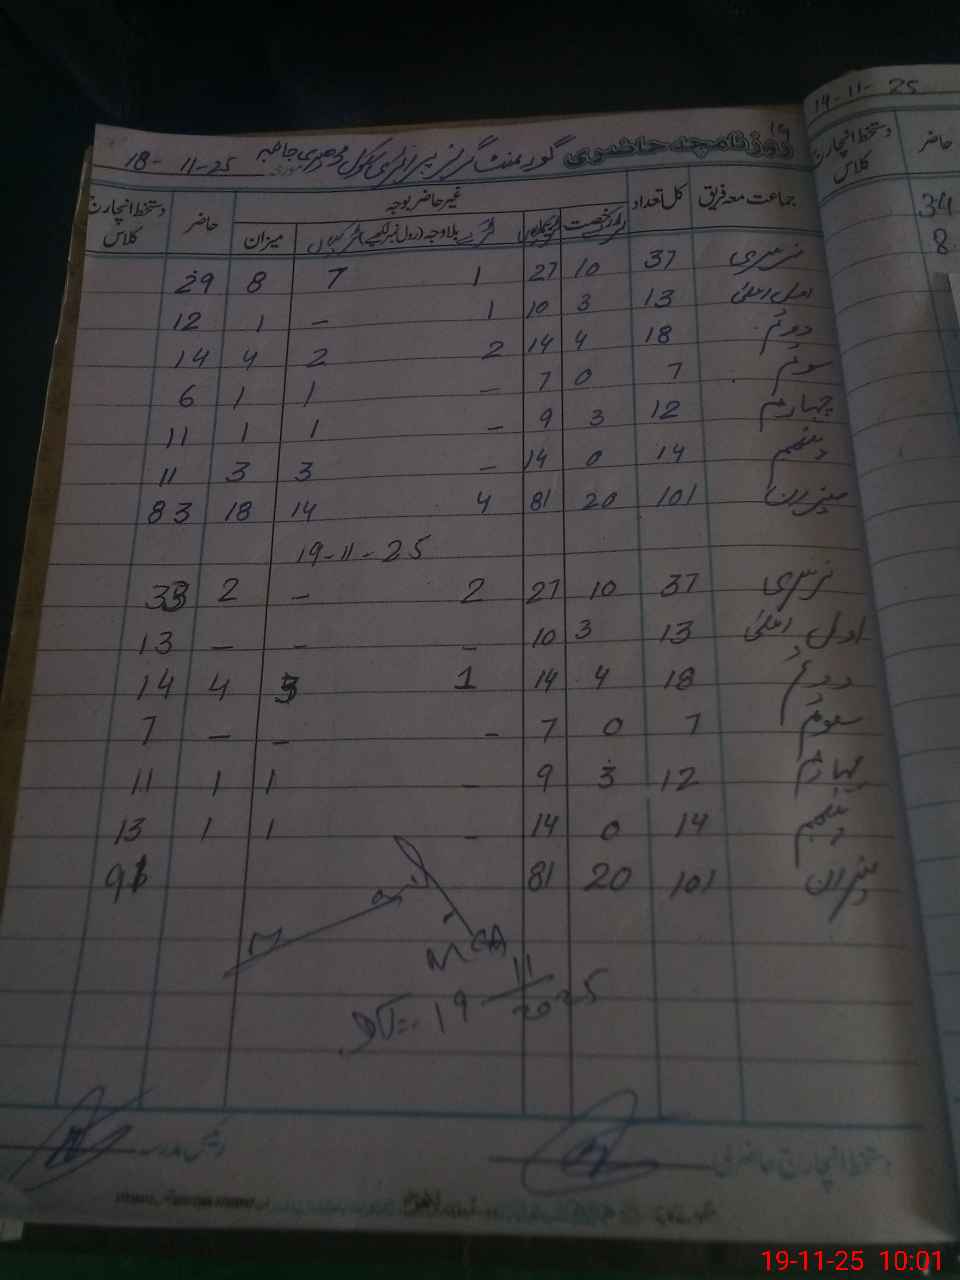 روزنامچہ حاضری گورنمنٹ گرلز پرائمری سکول 18-11-25
جماعت معہ فریق کل تعداد غیر حاضر بوجہ حاضر دستخط انچارج کلاس
رخصت بلاوجہ (رول نمبر لکھیے) میزان
نرسری 37 10 27 1 7 8 29
اول اعلیٰ 13 3 10 1 - 1 12
دوئم 18 4 14 2 2 4 14
سوئم 7 0 7 - 1 1 6
چہارم 12 3 9 - 1 1 11
پنجم 14 0 14 - 3 3 11
میزان 101 20 81 4 14 18 83
19-11-25
نرسری 37 10 27 2 - 2 33
اول اعلیٰ 13 3 10 - - - 13
دوئم 18 4 14 1 3 4 14
سوئم 7 0 7 - - - 7
چہارم 12 3 9 - 1 1 11
پنجم 14 0 14 - 1 1 13
میزان 101 20 81 91
MEA
19 11 2025
دستخط انچارج حاضری
19-11-25
حاضر دستخط انچارج کلاس
34
8
19-11-25 10:01